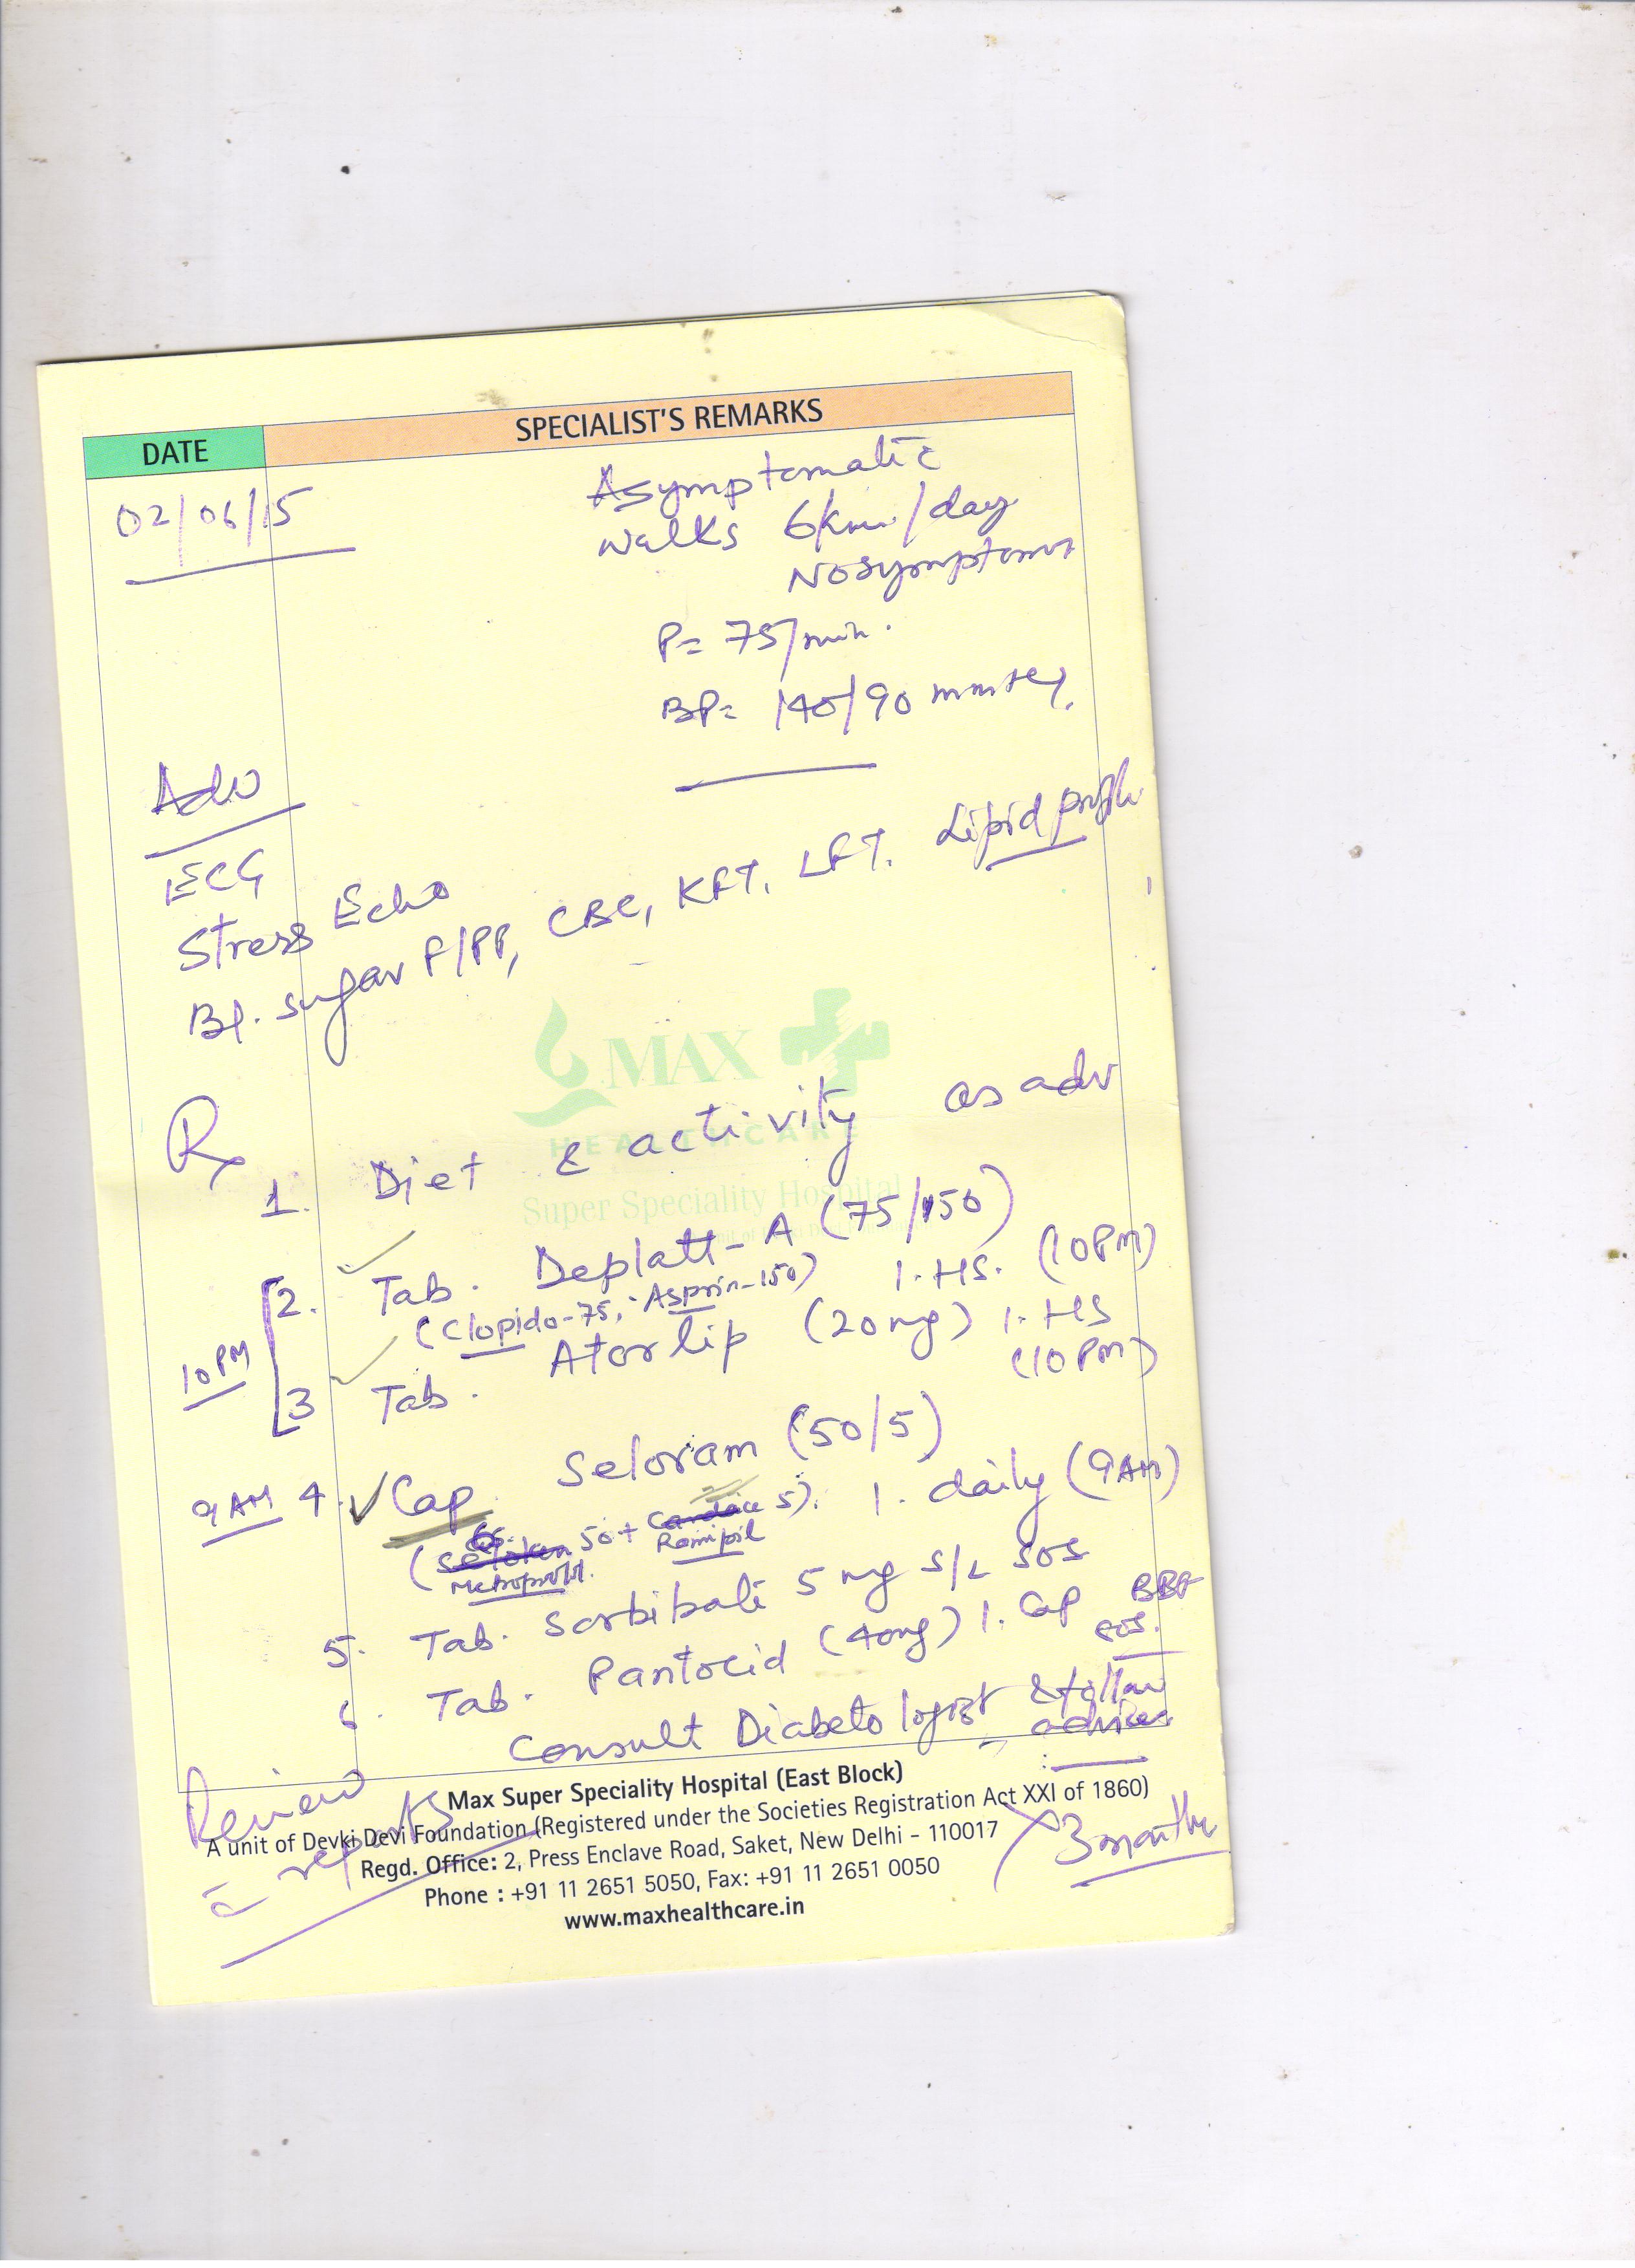 DATE
SPECIALIST'S REMARKS
02/06/15
Asymptomatic
Walks 6km/day
No symptoms
P= 75/min.
BP= 140/90 mmHg.
Adv
ECG
Stress Echo
Bl. sugar F/PP, CBC, KFT, LFT. Lipid profile
MAX
HEALTHCARE
Super Speciality Hospital
Rx
1. Diet & activity as adv
2. Tab. Deplatt-A (75/150)
(Clopido-75, Asprin-150) 1. HS. (10PM)
10PM
3 Tab. Atorlip (20mg) 1. HS
(10PM)
9AM 4. Cap. Seloram (50/5)
1. daily (9AM)
(Seloken 50 + Cardace 5).
Metoprolol. Ramipril
5. Tab. Sorbitrate 5 mg S/L SOS
6. Tab. Pantocid (40mg) 1. Cap BBF
SOS.
Consult Diabetologist & follow
advice.
Review
c̄ reports
Max Super Speciality Hospital (East Block)
A unit of Devki Devi Foundation (Registered under the Societies Registration Act XXI of 1860)
Regd. Office: 2, Press Enclave Road, Saket, New Delhi - 110017
Phone : +91 11 2651 5050, Fax: +91 11 2651 0050
www.maxhealthcare.in
X 3 months